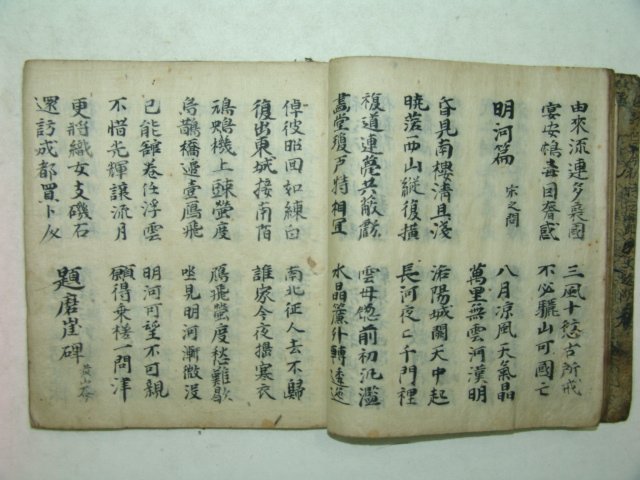 由來流連多喪國
宴安鴆毒因奢惑
三風十愆古所戒
不必驪山可國亡
明河篇 宋之問
八月凉風天氣晶
萬里無雲河漢明
昏見南樓清且淺
曉落西山縱復橫
洛陽城闕天中起
長河夜〻千門裡
複道連甍共蔽虧
畫堂瓊戶特相宜
雲母帳前初汎濫
水晶簾外轉逶迤
倬彼昭回如練白
復出東城接南陌
南北征人去不歸
誰家今夜搗寒衣
鴛鴦機上踈螢度
烏鵲橋邊壹鴈飛
鴈飛螢度愁難歇
坐見明河漸微沒
已能舒卷任浮雲
不惜光輝讓流月
明河可望不可親
願得乘槎一問津
更將織女支磯石
還訪成都買卜人
題磨崖碑 黃山谷